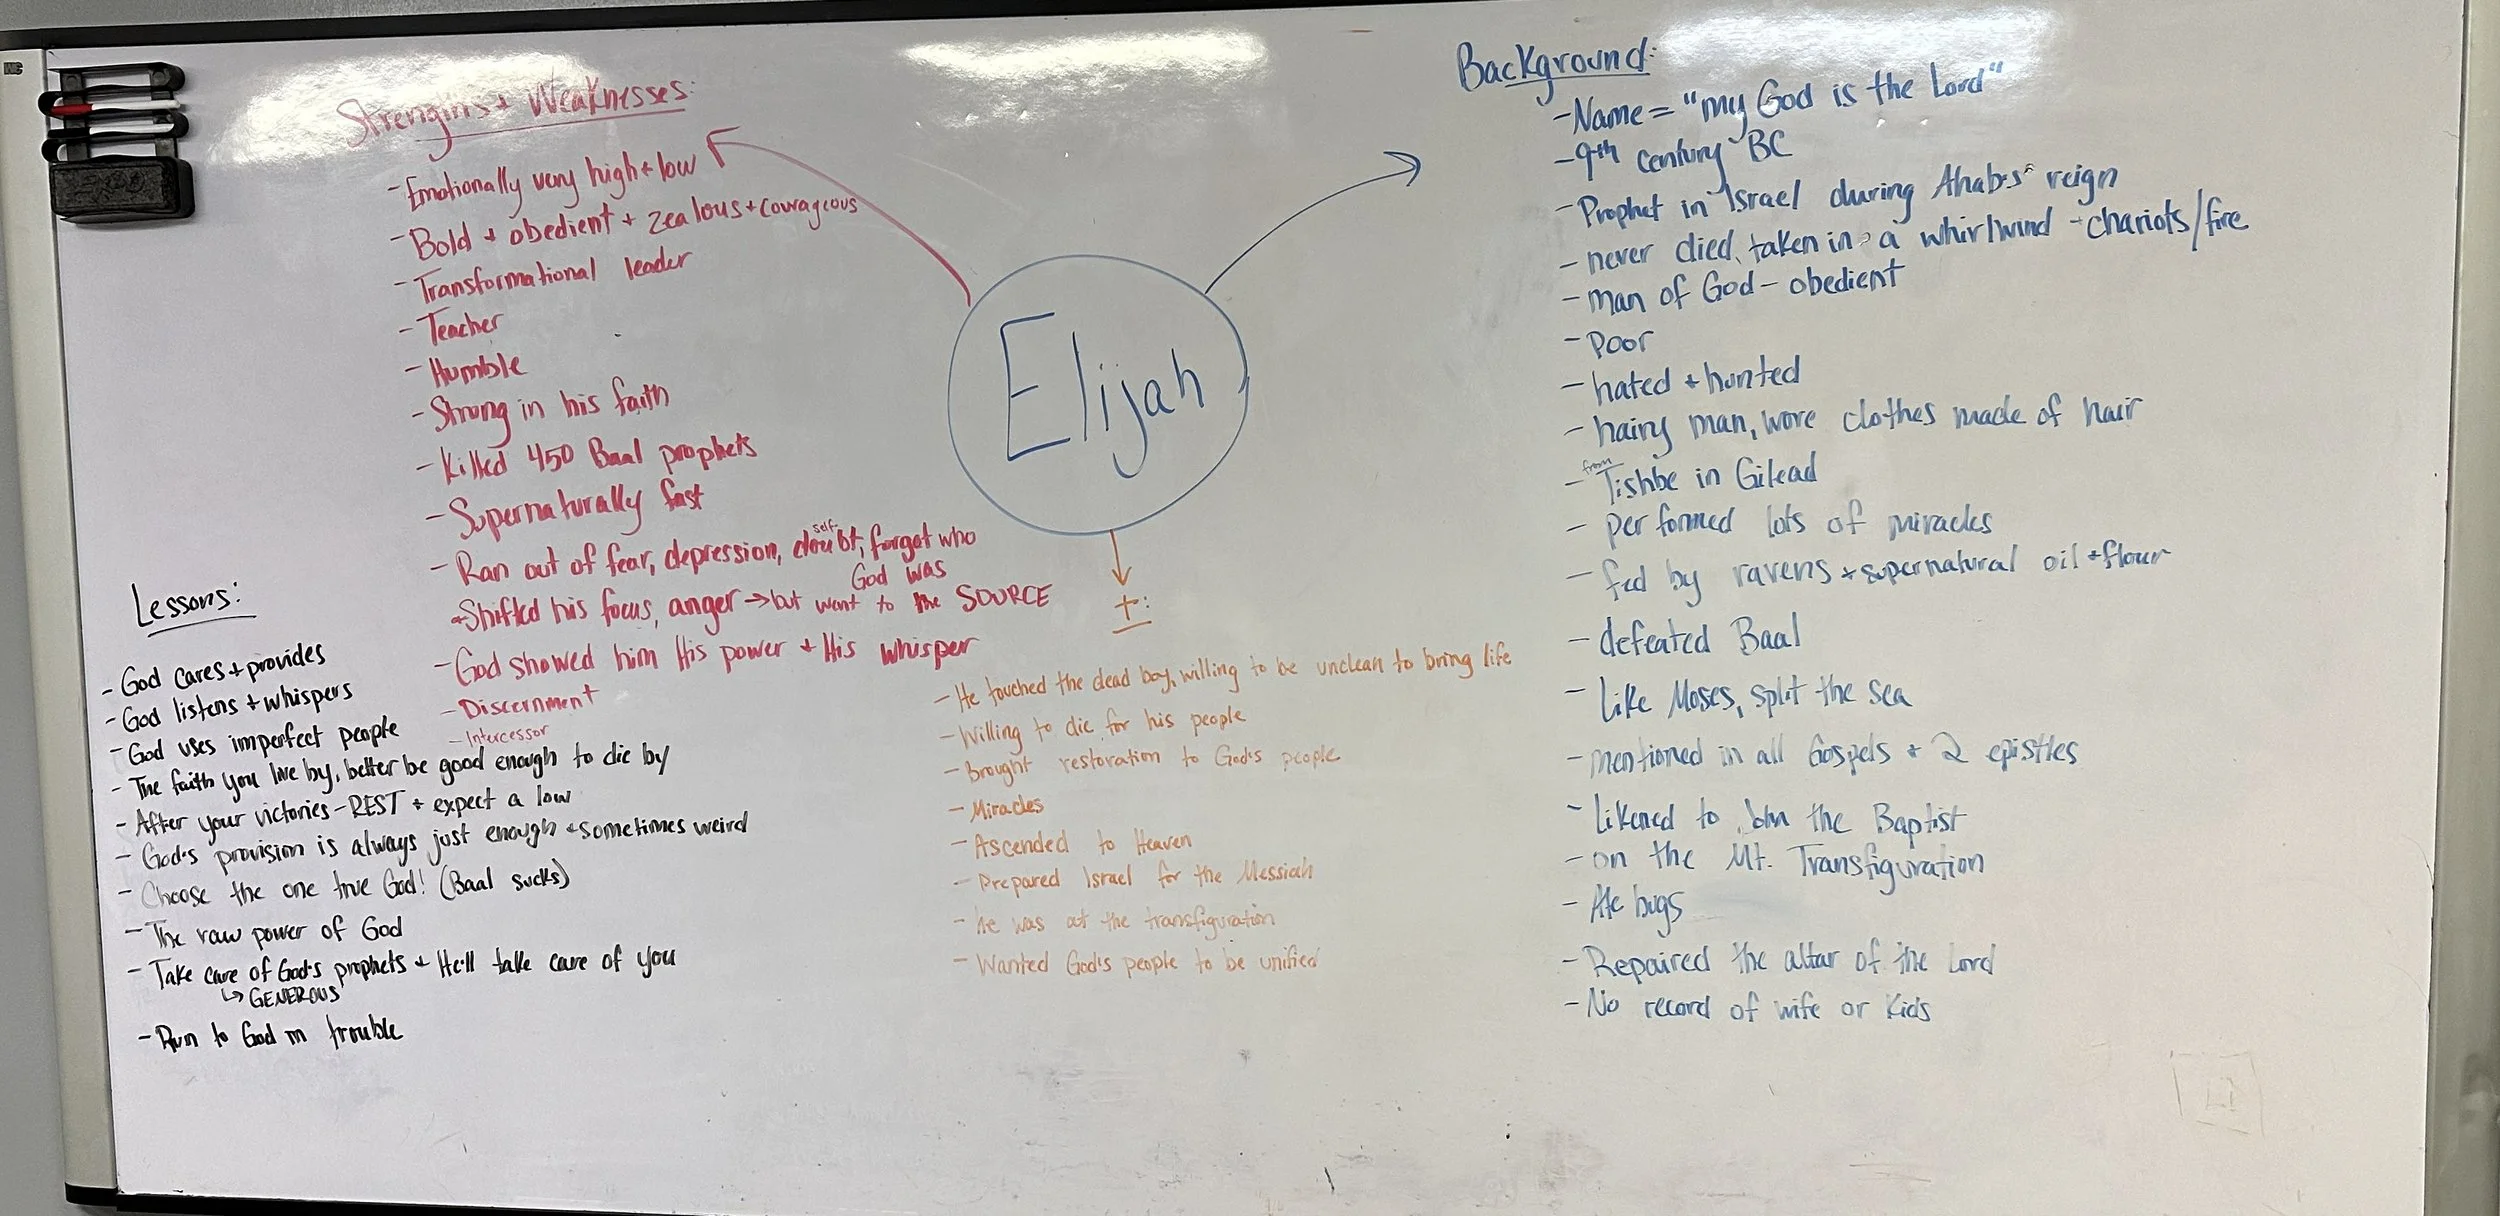 Strengths + Weaknesses:
- Emotionally very high + low
- Bold + obedient + zealous + courageous
- Transformational leader
- Teacher
- Humble
- Strong in his faith
- Killed 450 Baal prophets
- Supernaturally fast
self-
- Ran out of fear, depression, doubt, forgot who
God was
- Shifted his focus, anger → but went to the SOURCE
- God showed him His power + His whisper
- Discernment
- Intercessor
Lessons:
- God cares + provides
- God listens + whispers
- God uses imperfect people
- The faith you live by, better be good enough to die by
- After your victories - REST + expect a low
- God's provision is always just enough + sometimes weird
- Choose the one true God! (Baal sucks)
- The raw power of God
- Take care of God's prophets + He'll take care of you
↳ GENEROUS
- Run to God in trouble
Elijah
†:
- He touched the dead boy, willing to be unclean to bring life
- Willing to die for his people
- Brought restoration to God's people
- Miracles
- Ascended to Heaven
- Prepared Israel for the Messiah
- he was at the transfiguration
- Wanted God's people to be unified
Background:
- Name = "my God is the Lord"
- 9th century BC
- Prophet in Israel during Ahabs' reign
- never died, taken in a whirlwind - chariots/fire
- man of God - obedient
- poor
- hated + hunted
- hairy man, wore clothes made of hair
from
- Tishbe in Gilead
- performed lots of miracles
- fed by ravens + supernatural oil + flour
- defeated Baal
- like Moses, split the sea
- mentioned in all Gospels + 2 epistles
- likened to John the Baptist
- on the Mt. Transfiguration
- Ate bugs
- Repaired the altar of the Lord
- No record of wife or kids